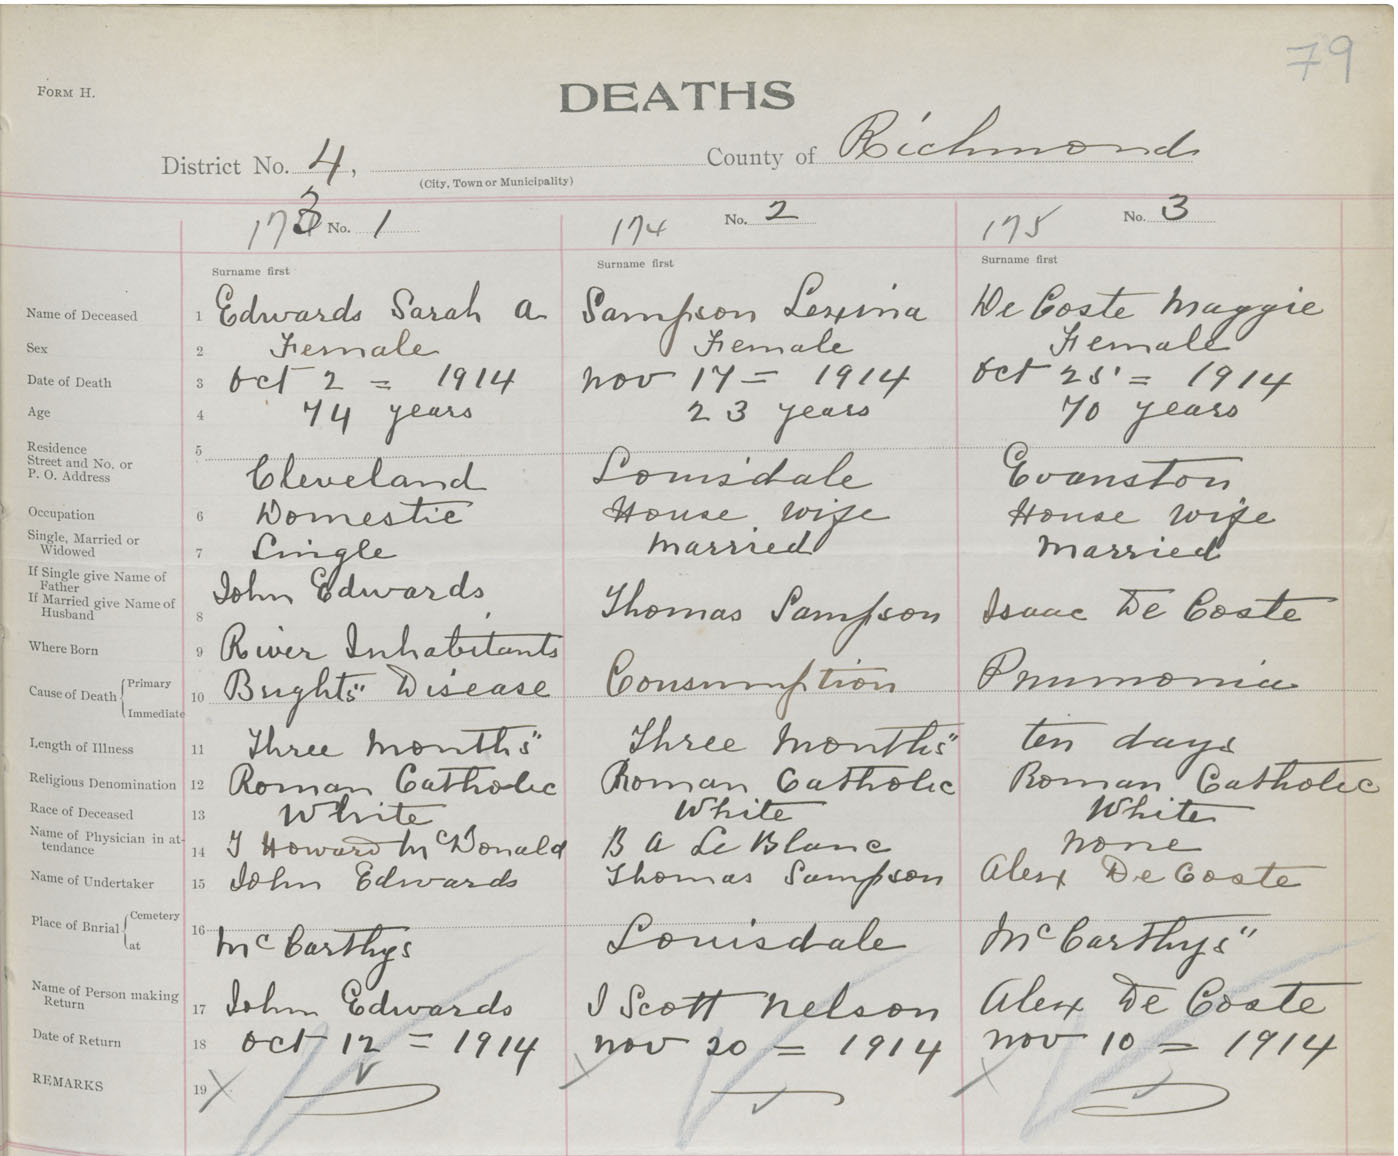 79
FORM H.
DEATHS
District No. 4, County of Richmond
(City, Town or Municipality)
173 No. 1 174 No. 2 175 No. 3
Surname first Surname first Surname first
Name of Deceased 1 Edwards Sarah A Sampson Lexina De Coste Maggie
Sex 2 Female Female Female
Date of Death 3 Oct 2 = 1914 Nov 17 = 1914 Oct 25 = 1914
Age 4 74 years 23 years 70 years
Residence
Street and No. or
P. O. Address 5 Cleveland Louisdale Evanston
Occupation 6 Domestic House wife House wife
Single, Married or
Widowed 7 Single Married Married
If Single give Name of
Father
If Married give Name of
Husband 8 John Edwards Thomas Sampson Isaac De Coste
Where Born 9 River Inhabitants
Cause of Death { Primary
Immediate 10 Brights" Disease Consumption Pnumonia
Length of Illness 11 Three Months" Three Months" ten days
Religious Denomination 12 Roman Catholic Roman Catholic Roman Catholic
Race of Deceased 13 White White White
Name of Physician in at-
tendance 14 J Howard McDonald B A Le Blanc None
Name of Undertaker 15 John Edwards Thomas Sampson Alex De Coste
Place of Burial { Cemetery
at 16 McCarthys Louisdale McCarthys"
Name of Person making
Return 17 John Edwards J Scott Nelson Alex De Coste
Date of Return 18 Oct 12 = 1914 Nov 20 = 1914 Nov 10 = 1914
REMARKS 19